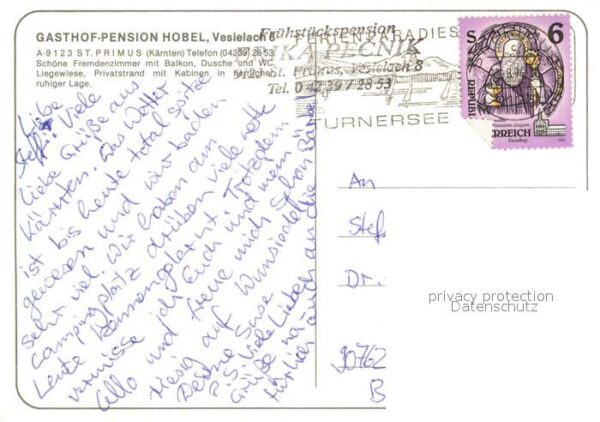 GASTHOF-PENSION HOBEL, Vesielach 8
A-9123 ST. PRIMUS (Kärnten) Telefon (04239) 28 53
Schöne Fremdenzimmer mit Balkon, Dusche und WC,
Liegewiese, Privatstrand mit Kabinen in
ruhiger Lage.
Frühstückspension
PEČNIK
St. Primus, Vesielach 8
Tel. 0 42 39 / 28 53
PARADIES
TURNERSEE
S 6
REPUBL
ERREICH
Liebe
Steffi! Viele
liebe Grüße aus
Kärnten. Das Wetter
ist bis heute total spitze
gewesen und wir baden
sehr viel. Wir haben am
Campingplatz drüben viele nette
Leute kennengelernt. Trotzdem
vermisse ich Euch und mein
Allo und freue mich schon
riesig auf Wunsiedel
Deine Suse
P.S. Viele Liebe
Grüße na-
türlich auch an die
An
Stef.
Dr.
privacy protection
Datenschutz
90762
B